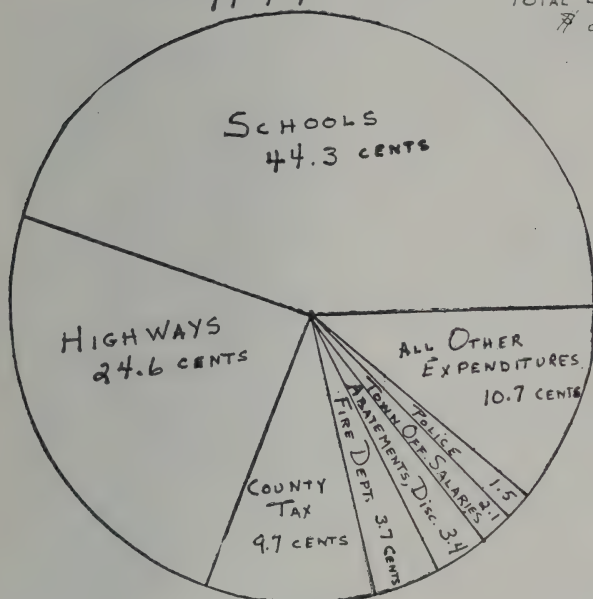 TOTAL
SCHOOLS
44.3 CENTS
HIGHWAYS
24.6 CENTS
ALL OTHER
EXPENDITURES
10.7 CENTS
POLICE 1.5
TOWN OFF. SALARIES 2.1
ABATEMENTS, DISC. 3.4
FIRE DEPT. 3.7 CENTS
COUNTY
TAX
9.7 CENTS